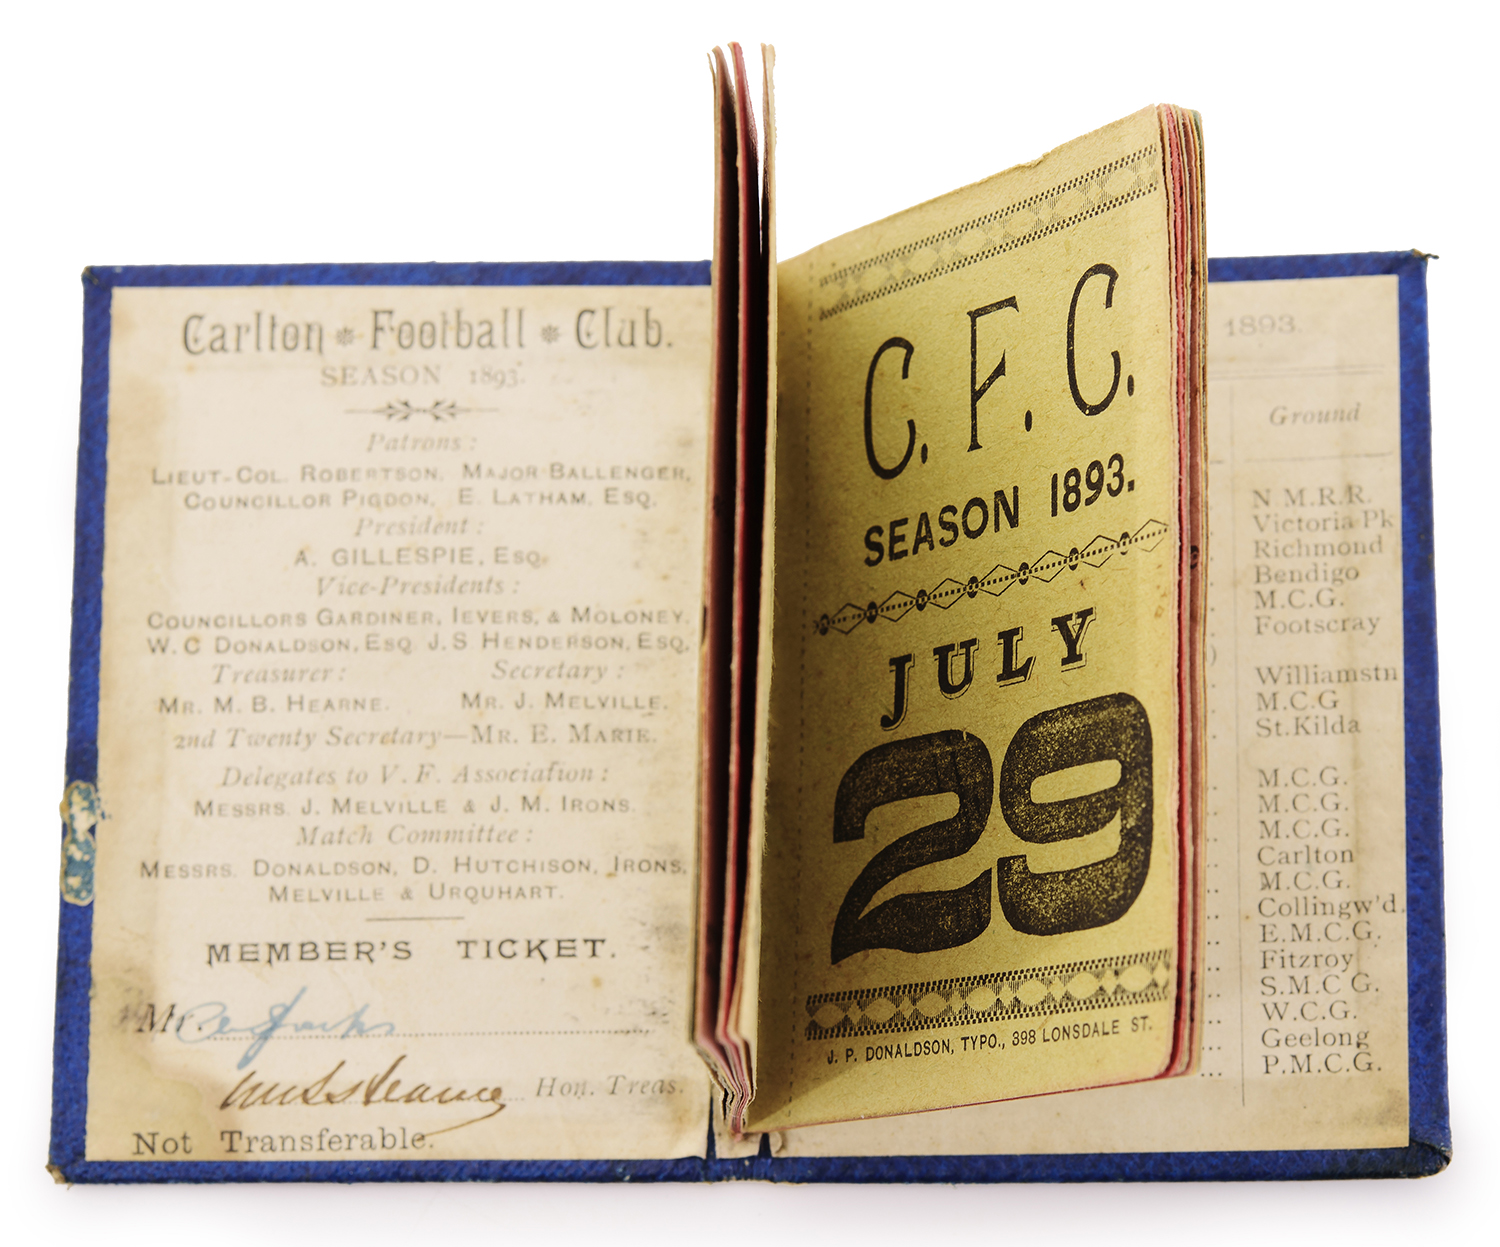 Carlton Football Club.
SEASON 1893.
Patrons:
LIEUT-COL. ROBERTSON, MAJOR BALLENGER,
COUNCILLOR PIGDON, E. LATHAM, ESQ.
President:
A. GILLESPIE, ESQ.
Vice-Presidents:
COUNCILLORS GARDINER, IEVERS, & MOLONEY,
W. C DONALDSON, ESQ J. S HENDERSON, ESQ,
Treasurer: Secretary:
MR. M. B. HEARNE. MR. J. MELVILLE.
2nd Twenty Secretary—MR. E. MARIE.
Delegates to V. F. Association:
MESSRS. J. MELVILLE & J. M. IRONS.
Match Committee:
MESSRS. DONALDSON, D. HUTCHISON, IRONS,
MELVILLE & URQUHART.
MEMBER'S TICKET.
Mr.
Hon. Treas.
Not Transferable.
C. F. C.
SEASON 1893.
JULY
29
J. P. DONALDSON, TYPO., 398 LONSDALE ST.
1893.
Ground
N M.R.R.
Victoria Pk
Richmond
Bendigo
M.C.G.
Footscray
Williamstn
M.C.G
St.Kilda
M.C.G.
M.C.G.
M.C.G.
Carlton
M.C.G.
Collingw'd.
E.M.C.G.
Fitzroy
S.M.C G.
W.C.G.
Geelong
P.M.C.G.